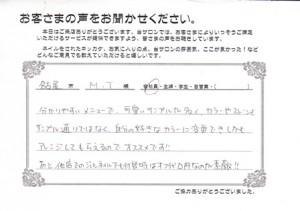 お客さまの声をお聞かせください。
本日はご来店ありがとうございます。当サロンでは、お客さまによりいっそうご満足
いただけるサービスが提供できますよう、皆さまの声をお聞きしています。
ネイルをされたキッカケ、お気に入りの点、当サロンの雰囲気、ここが良かった!など
どんなご意見でも教えていただけると嬉しいです。
名古屋 市 M.T 様 会社員・主婦・学生・自営業・( )
分かりやすいメニューで、可愛いサンプルが多く、カラーやストーンも
サンプル通りではなく、自分の好きなカラーに変更できしかも
アレンジしてもらえるので オススメです!!
あと、他店でのジェルネイルでも付替時はオフが0円なのも素敵!!
ご協力ありがとうございました。